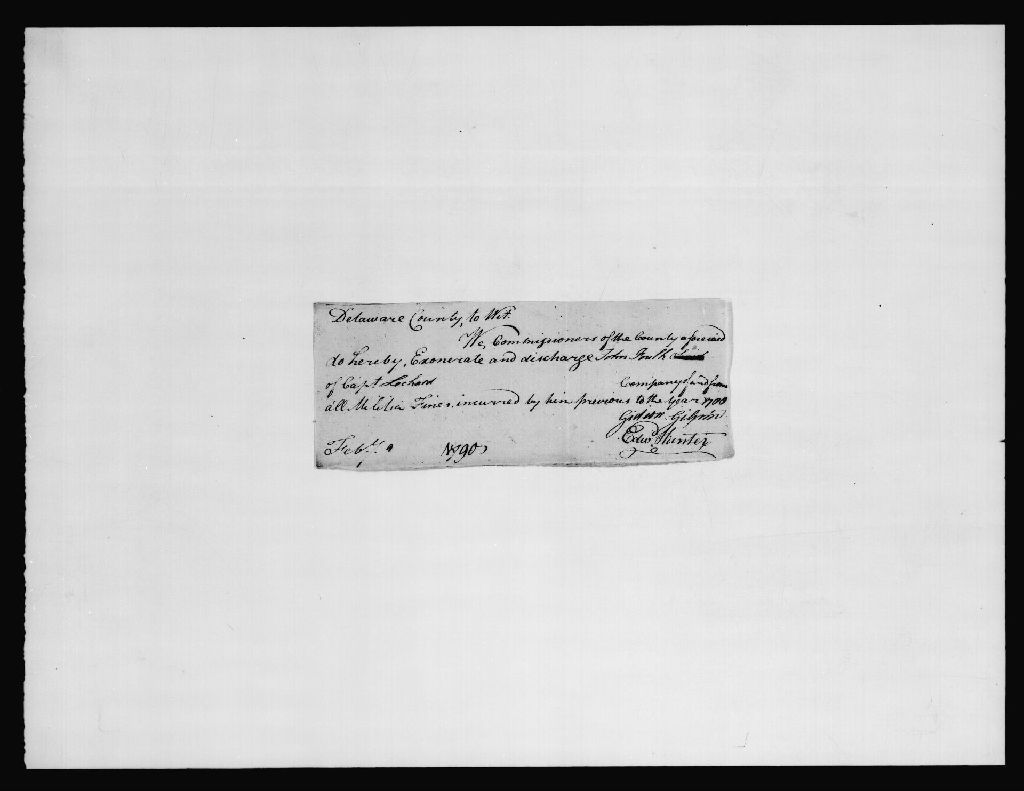 Delaware County, to Wit.
We, Commissioners of the County aforesaid
do hereby, Exonerate and discharge John
of Capt Lockard Company of and from
all Melitia Fines incurred by him previous to the year 1788
Gideon Gilpin
Edwd Hunter
Feby 1790